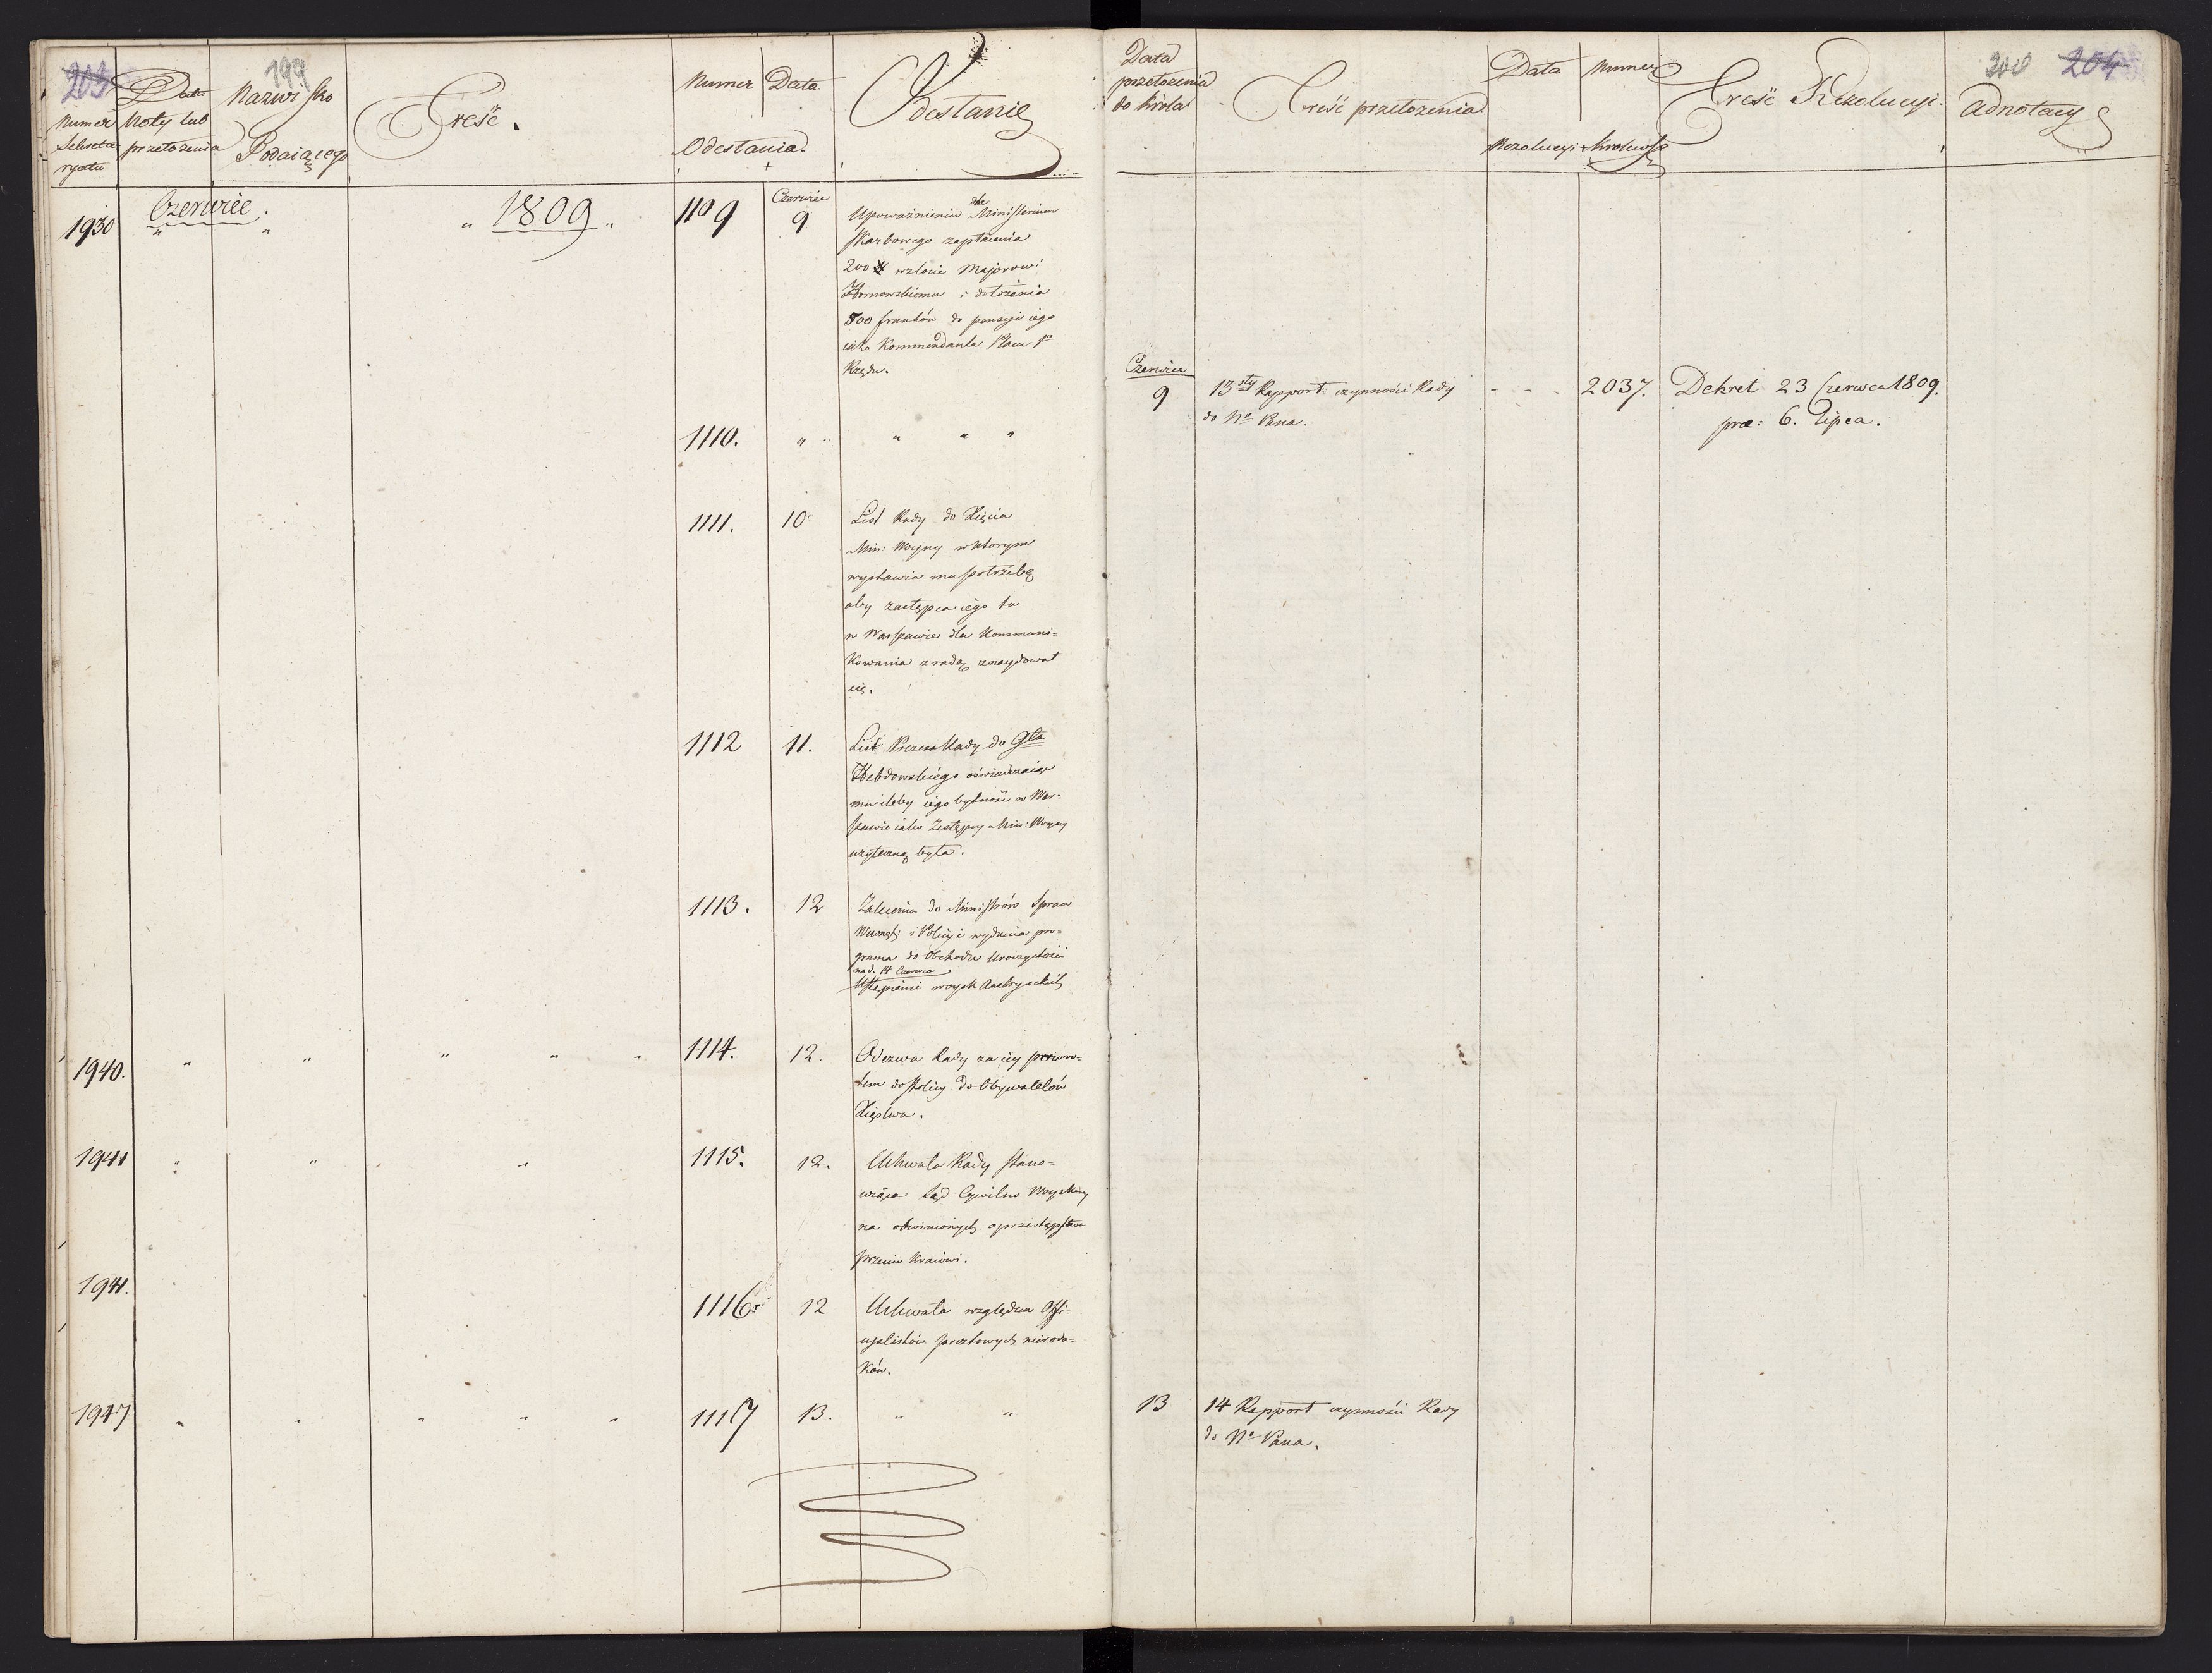 203 199
Numer Sekretaryatu
Data Noty lub przełożenia
Nazwisko Podaiącego
Treść.
Numer Data
Odesłania.
Odesłanie
1930 Czerwiec. " " " 1809. " 1109 Czerwiec 9
Upoważnienie dla Ministerium
Skarbowego zapłacenia
200 # w złocie Majorowi
i dołożenia
500 franków do pensyi iego
iako Kommendanta Placu 1o
Rzędu.
1110. " " " " "
1111. 10
List Rady do Xięcia
Min: Woyny w ktorym
wystawia mu potrzebę
aby zastępca iego tu
w Warszawie dla Kommuni=
kowania z radą znaydował
się.
1112 11.
List Prezesa Rady do Gła
Hebdowskiego oświadczaiąc
mu iżby iego bytność w War=
szawie iako Zastępcy Min: Woyny
użyteczną była.
1113. 12
Zalecenia do Ministrów Spraw
Wewnęt: i Policyi wydania pro=
grama do Obchodu Uroczystości
na d. 14 Czerwca
Ustąpienia woysk Austryackich
1940. " " " " " 1114. 12.
Odezwa Rady za iey powro=
tem do stolicy do Obywatelów
Xięstwa.
1941 " " " 1115. 12.
Uchwała Rady stano=
wiąca Sąd Cywilno Woyskowy
na obwinionych o przestępstwa
przeciw Kraiowi.
1941. 1116 12
Uchwała względem Offi=
cyalistów pocztowych nieroda=
ków.
1947 " " " " " 1117 13. " "
200 204
Data przełożenia do króla
Treść przełożenia
Data Numer
Rezolucyi Królewsk
Treść Rezolucyi.
Adnotacy
Czerwiec
9 13sty Rapport czynności Rady - - - 2037. Dekret 23 Czerwca 1809.
do No Pana. prae: 6. Lipca.
13 14 Rapport czynności Rady
do No Pana.